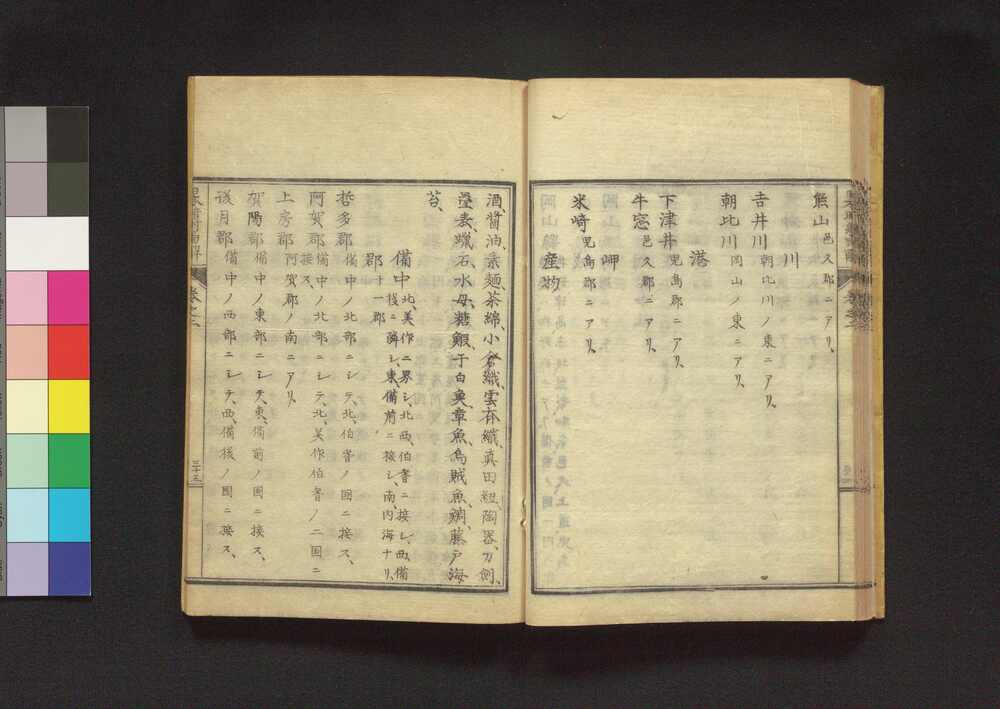 熊山 邑久郡ニアリ、
川
吉井川 朝比川ノ東ニアリ、
朝比川 岡山ノ東ニアリ、
港
下津井 児島郡ニアリ、
牛窓 邑久郡ニアリ、
岬
米崎 児島郡ニアリ、
産物
酒、醤油、素麺、茶、綿、小倉織、雲斎織、真田紐、陶器、刀劍、
疊表、蠟石、水母、糖鰕、干白奠、章魚、烏賊魚、鯛、藤戸海
苔、
備中 北、美作ニ界シ、北西、伯耆ニ接シ、西、備
後ニ隣シ、東、備前ニ接シ、南、内海ナリ、
郡 十一郡
哲多郡 備中ノ北部ニシテ、北、伯耆ノ国ニ接ス、
阿賀郡 備中ノ北部ニシテ、北、美作伯耆ノ二国ニ
接ス、
上房郡 阿賀郡ノ南ニアリ、
賀陽郡 備中ノ東部ニシテ、東、備前ノ国ニ接ス、
後月郡 備中ノ西部ニシテ、西、備後ノ国ニ接ス、
卷之二
三十五